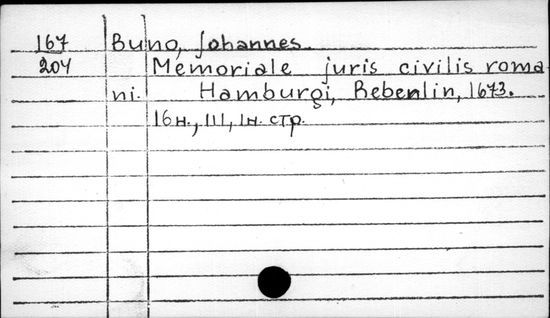 167 Buno, Johannes.
204 Memoriale juris civilis roma-
ni. Hamburgi, Rebenlin, 1673.
16н., 111, 1н. стр.